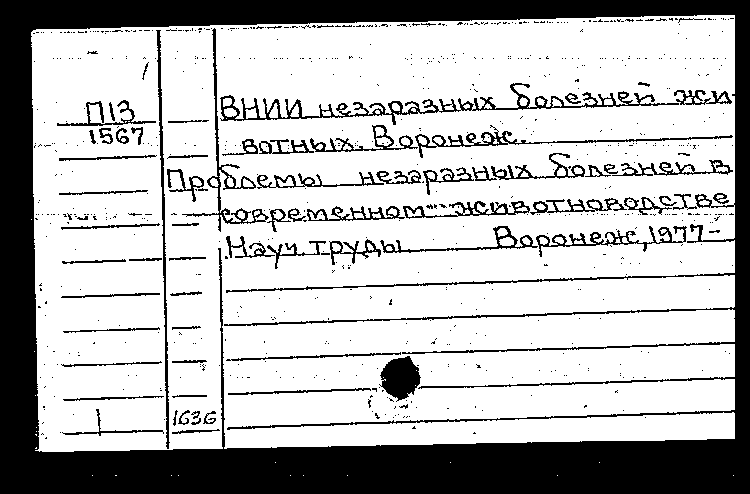 П13
1567
ВНИИ незаразных болезней жи-
вотных. Воронеж.
Проблемы незаразных болезней в
современном животноводстве
Науч. труды Воронеж, 1977-
1636